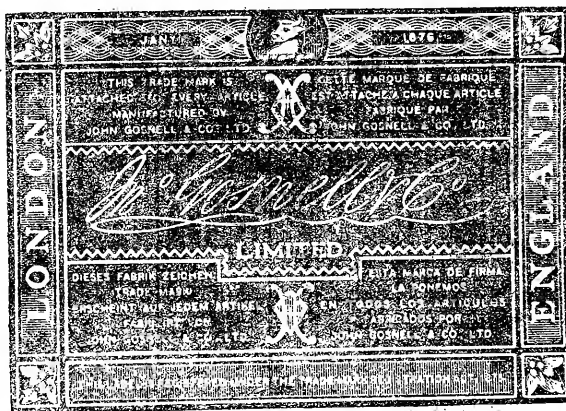 JANY 1876
LONDON
THIS TRADE MARK IS
ATTACHED TO EVERY ARTICLE
MANUFACTURED BY
JOHN GOSNELL & CO. LTD.
CETTE MARQUE DE FABRIQUE
EST ATTACHE A CHAQUE ARTICLE
FABRIQUE PAR
JOHN GOSNELL & CO. LTD.
Jno Gosnell & Co
LIMITED
DIESES FABRIK ZEICHEN
TRADE MARK
ERSCHEINT AUF JEDEM ARTIKEL
JOHN GOSNELL & CO. LTD.
ESTA MARCA DE FIRMA
LA PONEMOS
EN TODOS LOS ARTICULOS
FABRICADOS POR
JOHN GOSNELL & CO. LTD.
ENGLAND
UNDER THE TRADE MARKS